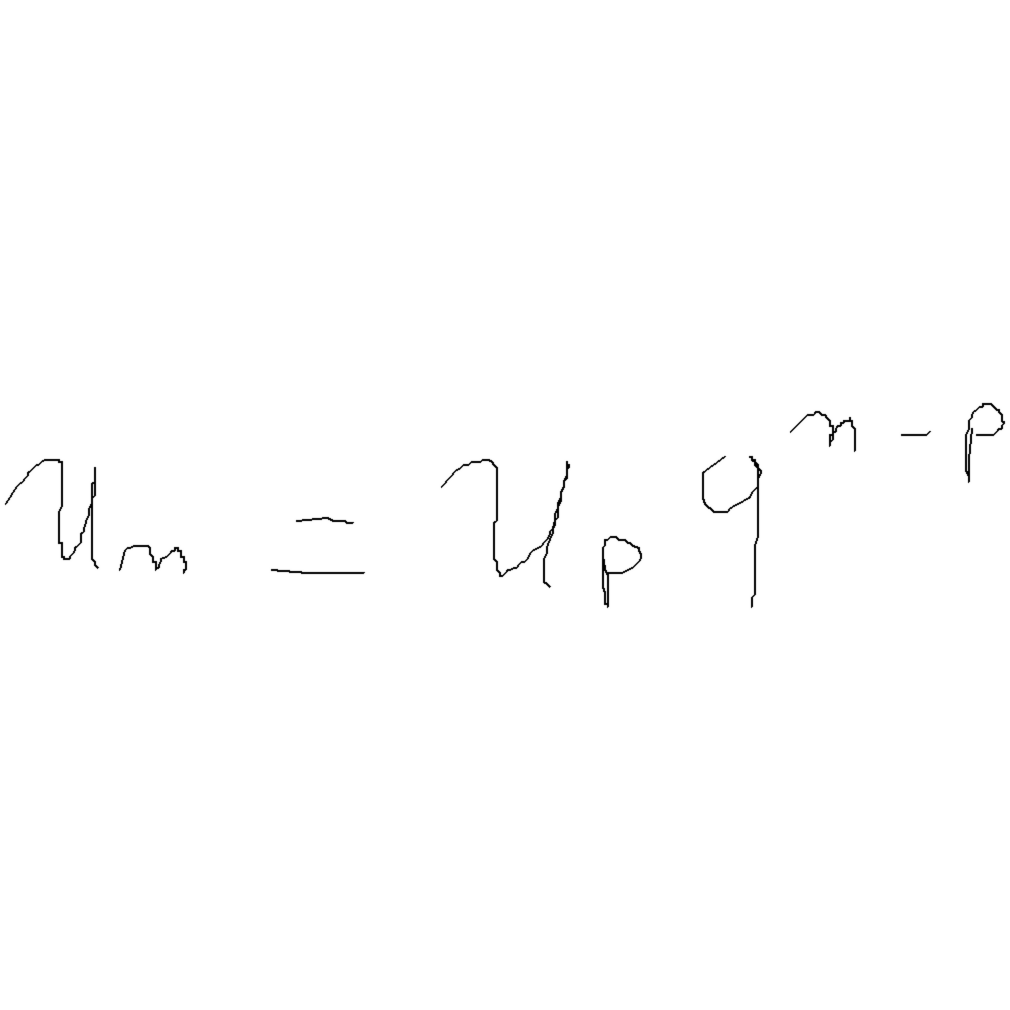 u_n = u_p q^{n-p}